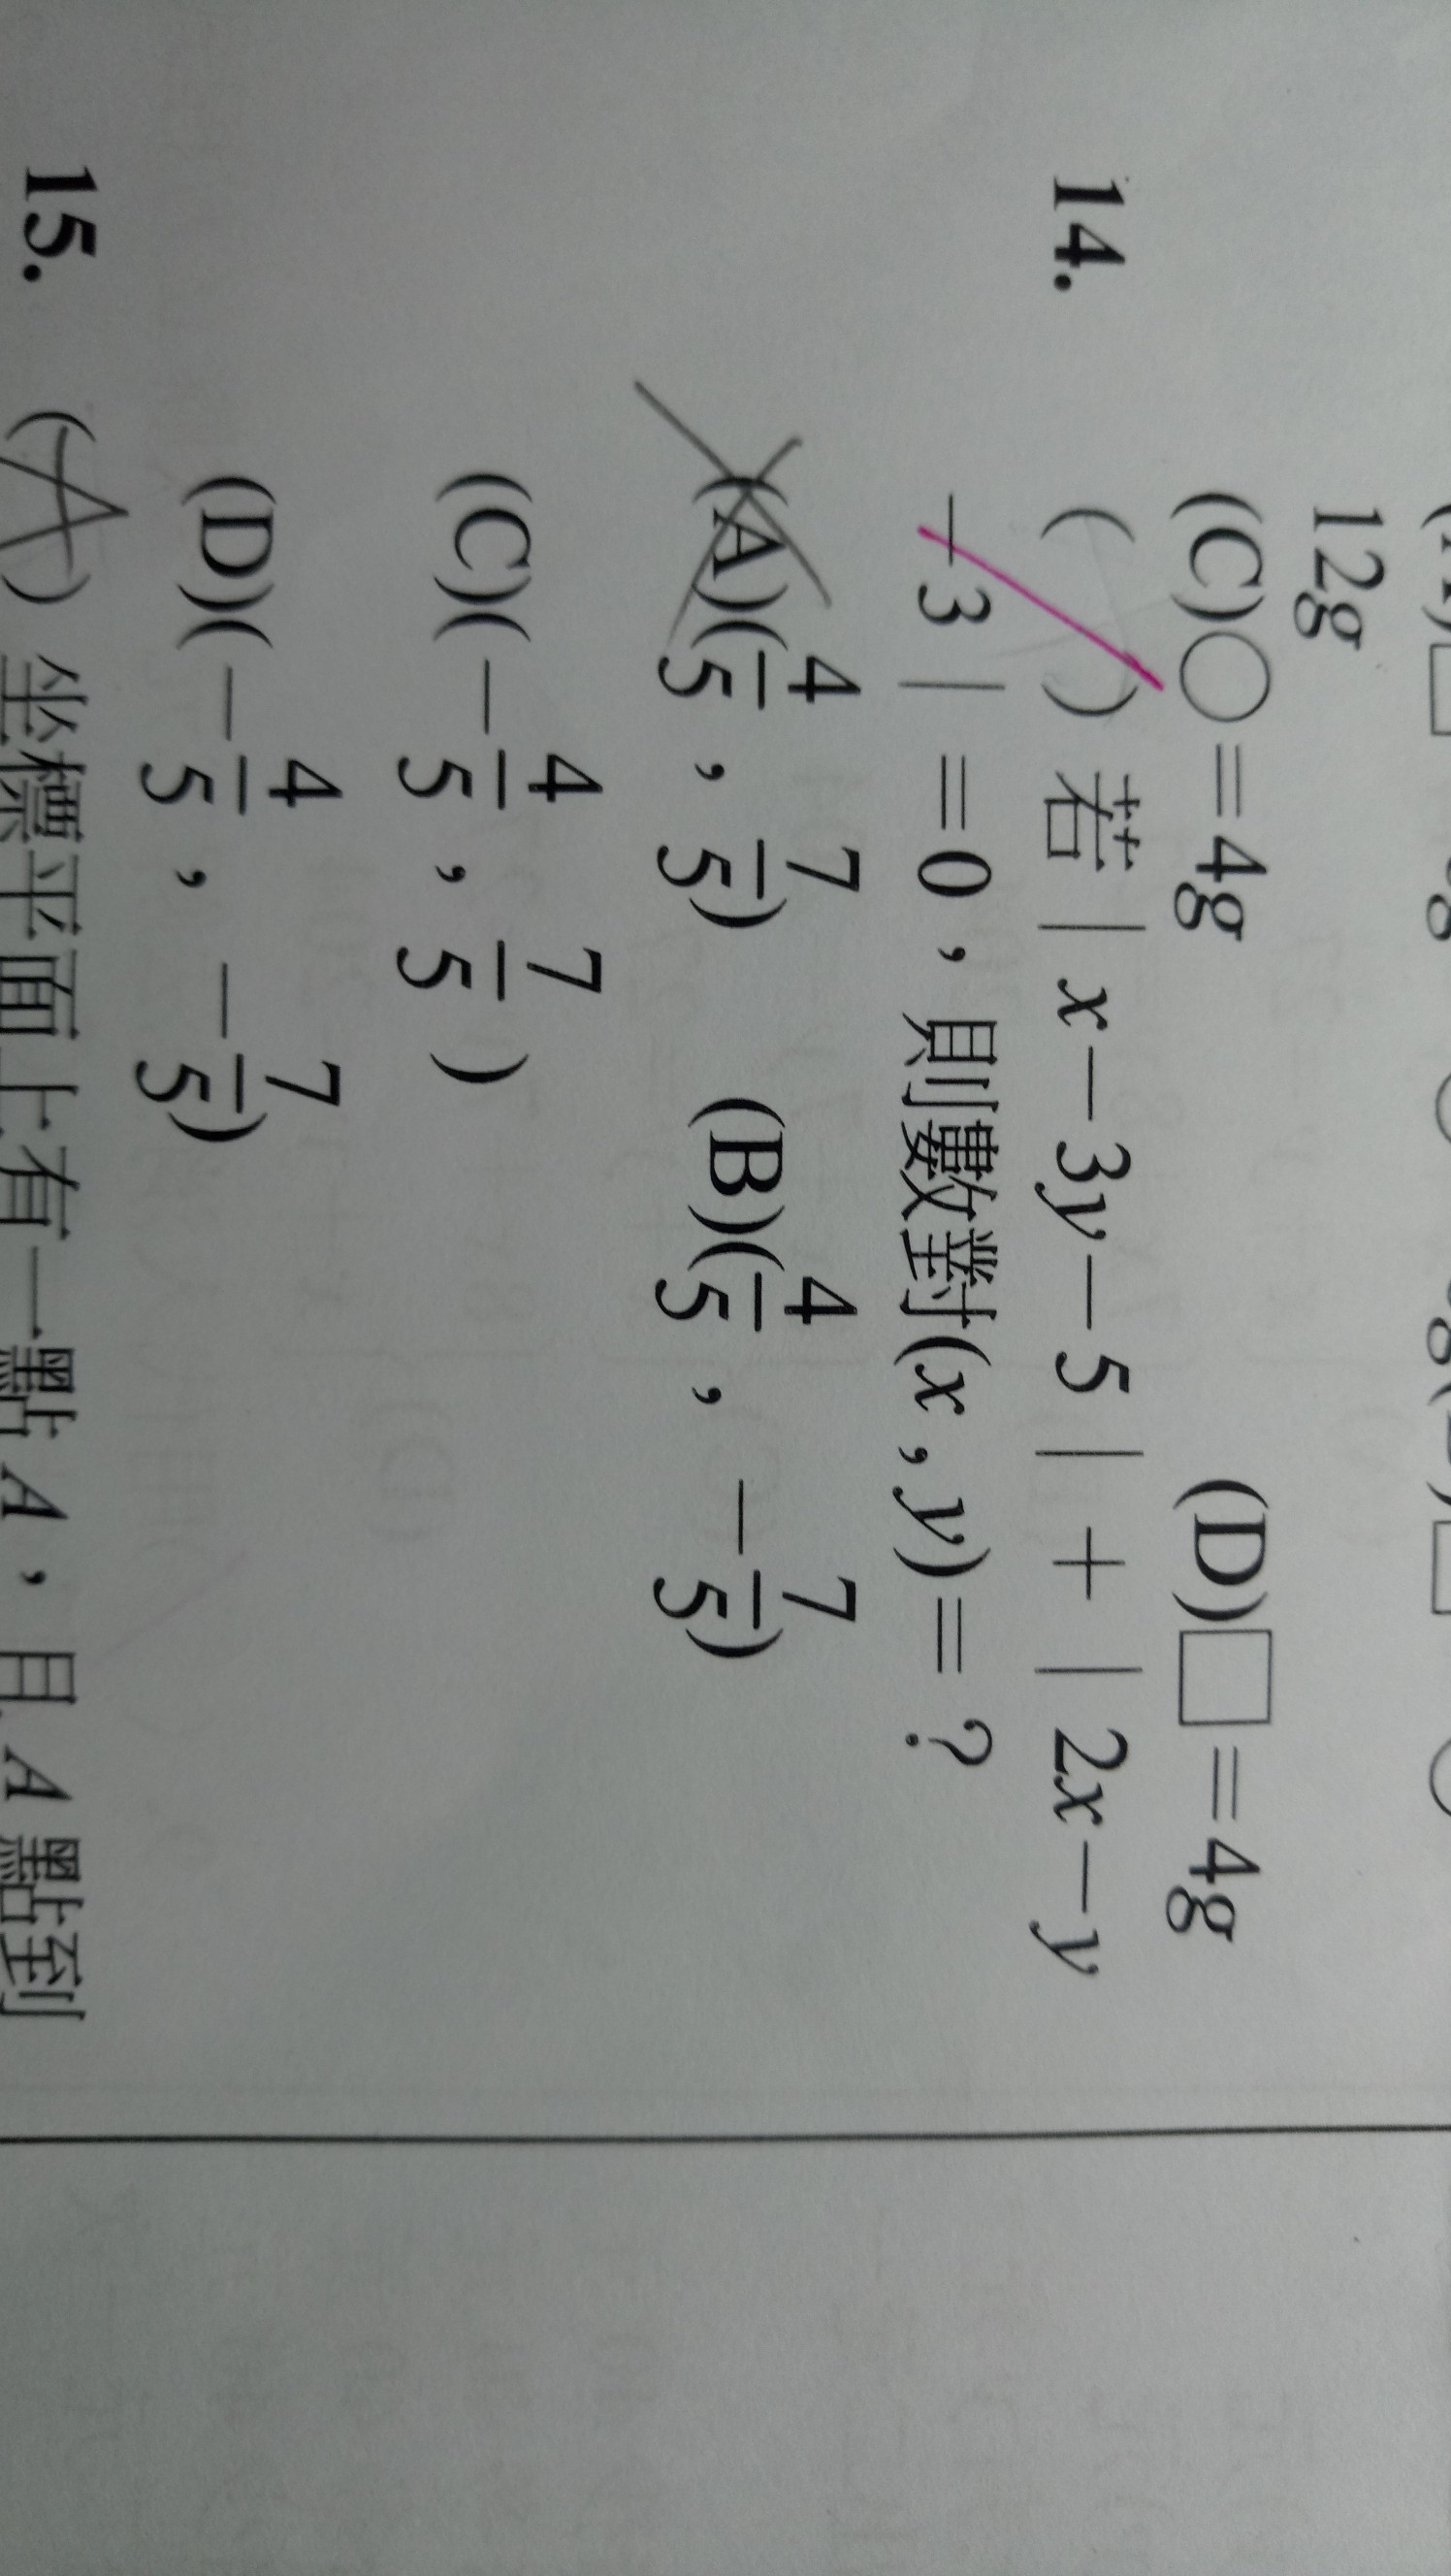 12g
(C)○=4g (D)□=4g
14. ( ) 若|x-3y-5|+|2x-y
-3|=0，則數對(x,y)=？
(A)(4/5，7/5) (B)(4/5，-7/5)
(C)(-4/5，7/5)
(D)(-4/5，-7/5)
15. (A) 坐標平面上有一點A，且A點到